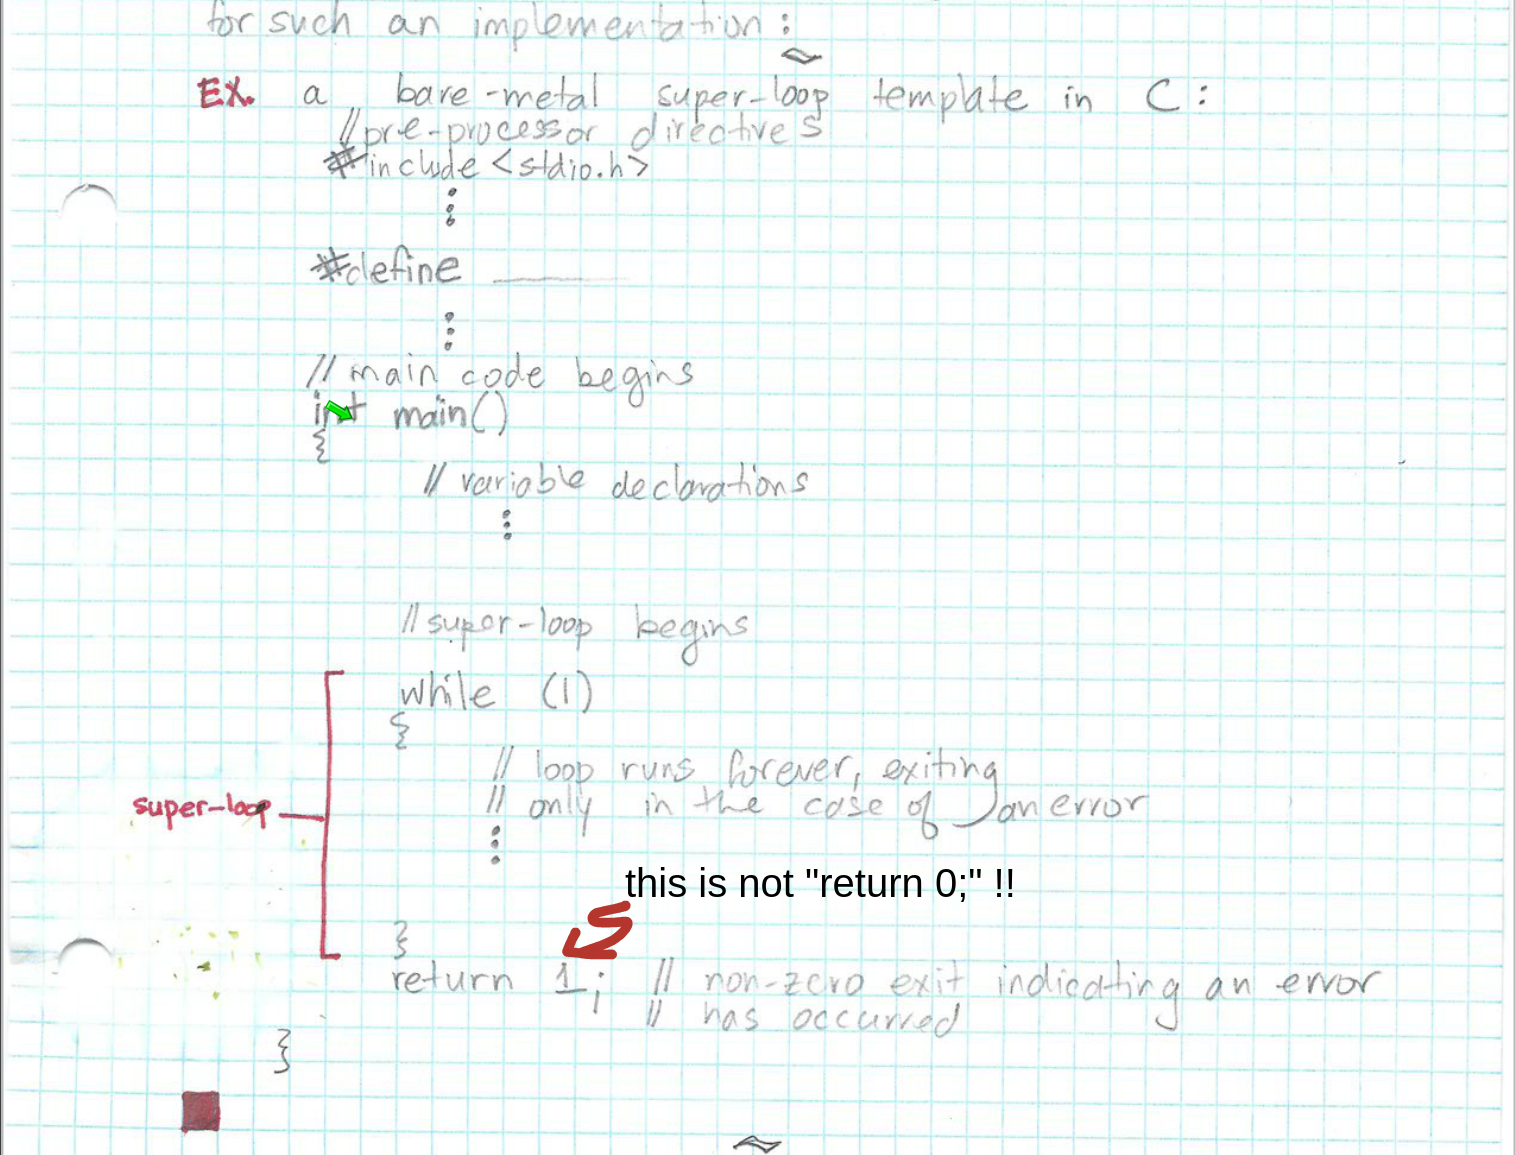 for such an implementation:
EX. a bare-metal super-loop template in C:
//pre-processor directives
#include <stdio.h>
#define ______
// main code begins
int main()
{
// variable declarations
//super-loop begins
while (1)
{
// loop runs forever, exiting
// only in the case of an error
super-loop
this is not "return 0;" !!
}
return 1; // non-zero exit indicating an error
// has occurred
}